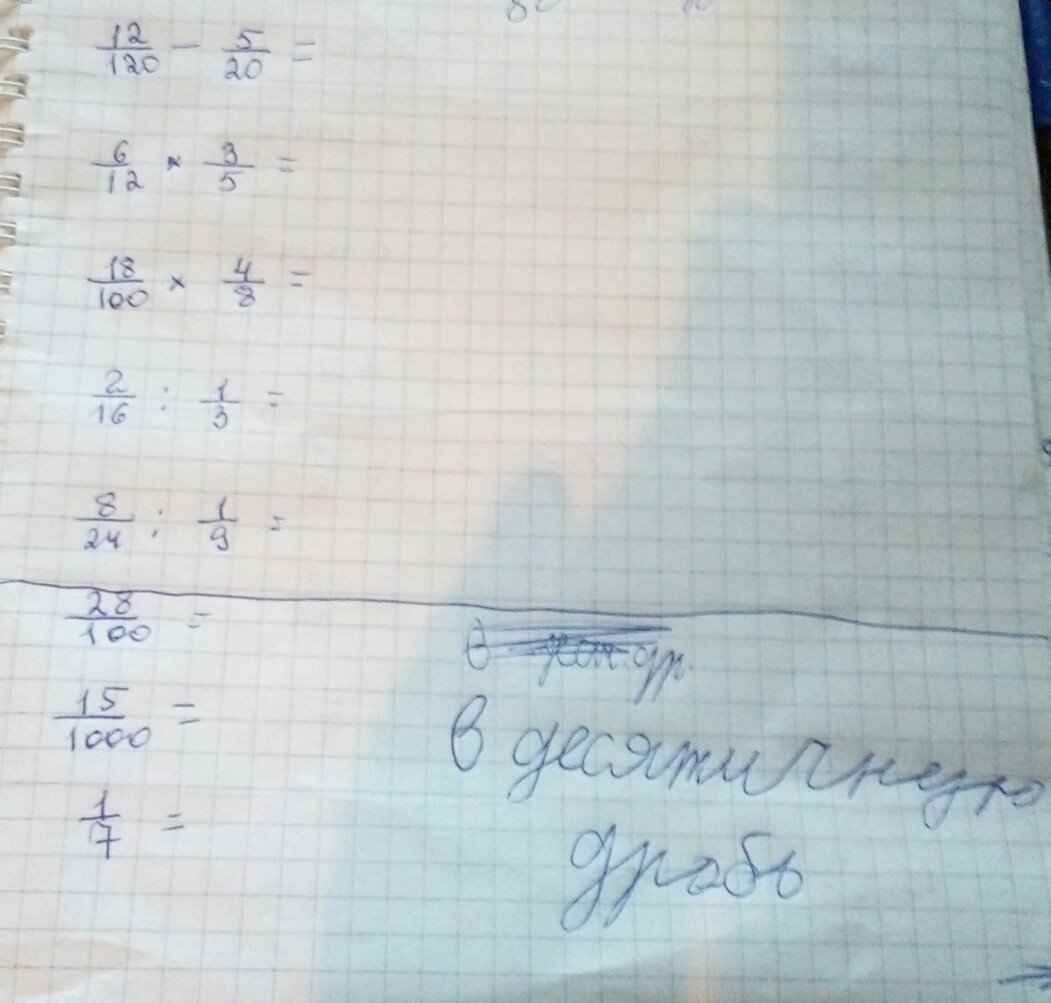 12/120 - 5/20 =
6/12 × 3/5 =
18/100 × 4/8 =
2/16 : 1/3 =
8/24 : 1/9 =
28/100 =
15/1000 =
в десятичную
1/7 =
дробь